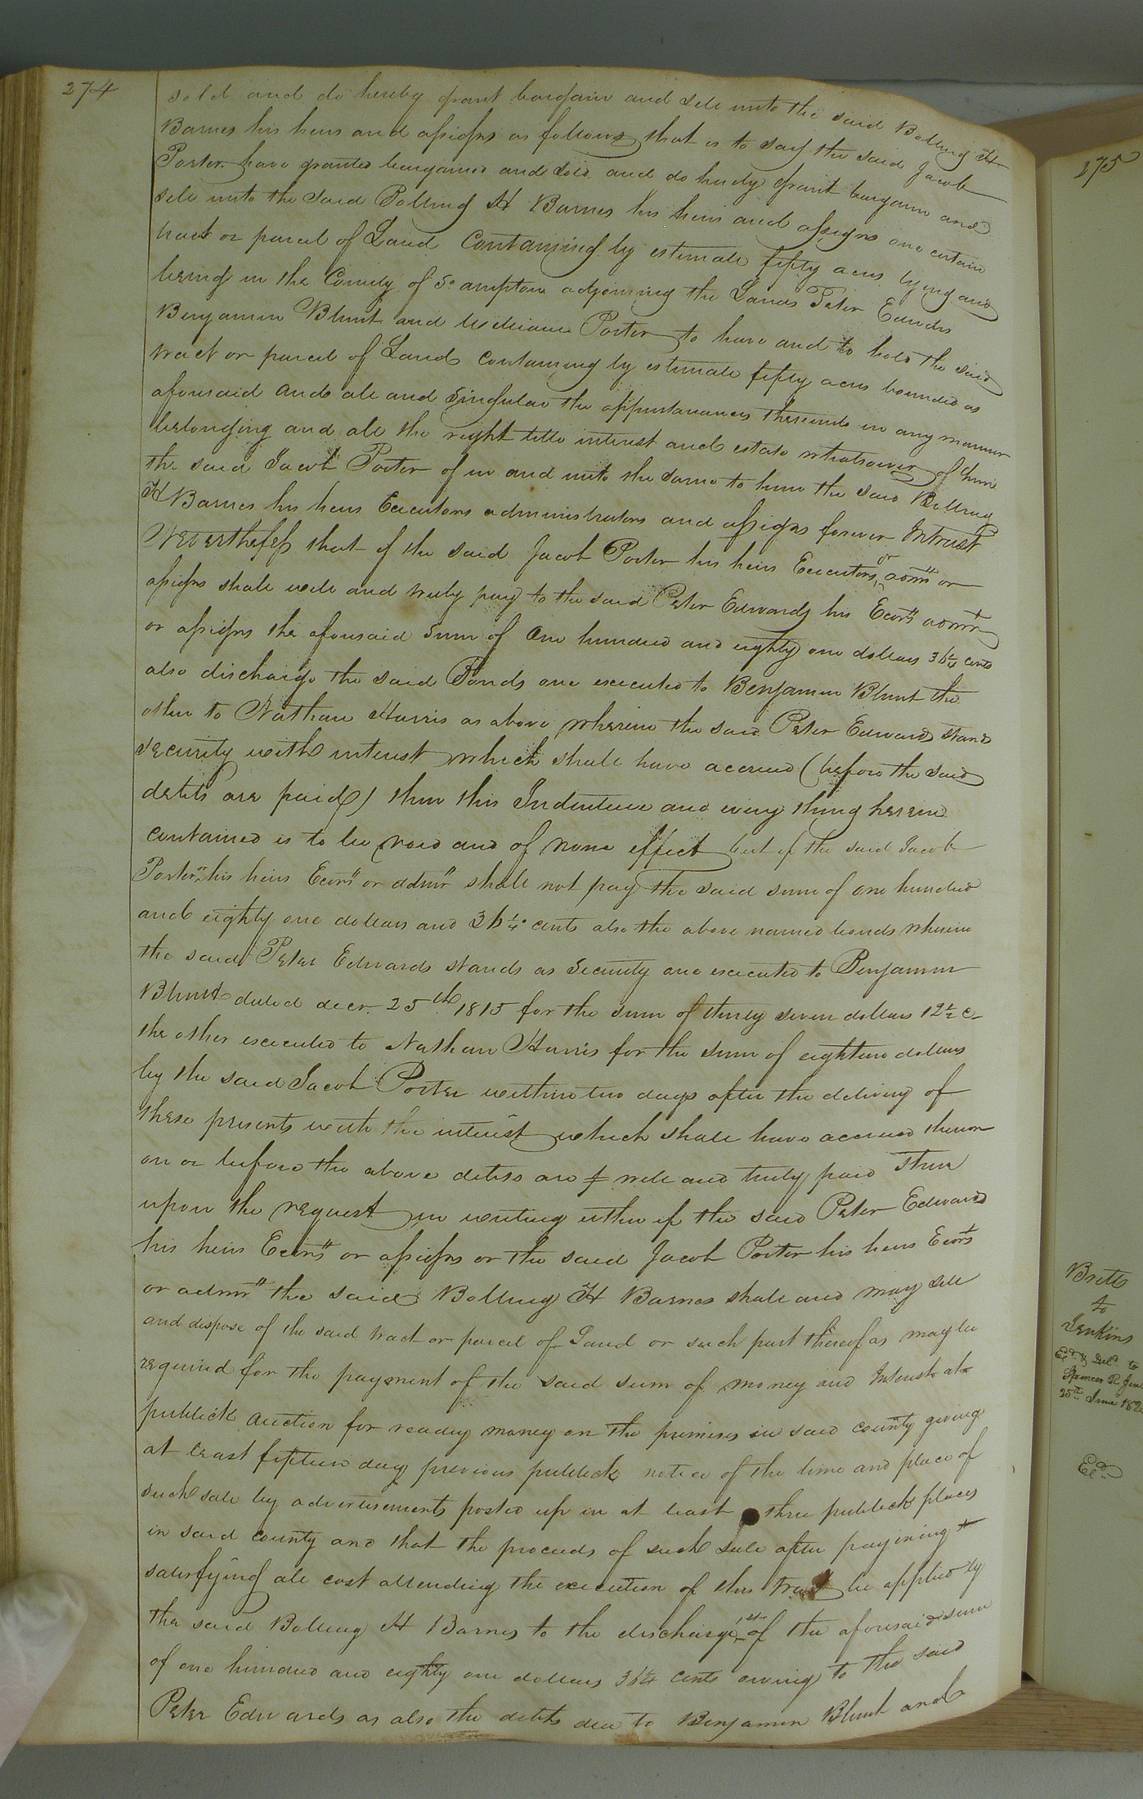 274
sold and do hereby grant bargain and sele unto the said Bolling H
Barnes his heirs and assigns as follows that is to say the said Jacob
Porter have granted bargained and sold and do hereby grant bargain and
sele unto the said Bolling H Barnes his heirs and assigns one certain
tract or parcel of Land containing by estimate fifty acres lying and
being in the County of So ampton adjoining the Lands Peter Edwards
Benjamin Blunt and William Porter to have and to hold the said
tract or parcel of Land containing by estimate fifty acres bounded as
aforesaid and all and singular the appurtanances thereunto in any manner
belonging and all the right title interest and estate whatsoever of him
the said Jacob Porter of in and unto the same to him the said Bolling
H Barnes his heirs Executors administrators and assigns forever In trust
Nevertheless that if the said Jacob Porter his heirs Executors or admrs or
assigns shall well and truly pay to the said Peter Edwards his Ecors admrs
or assigns the aforesaid sum of one hundred and eighty one dollars 36¼ cents
also discharge the said Bonds one executed to Benjamin Blunt the
other to Nathan Harris as above wherein the said Peter Edwards stands
security with interest which shall have accrued (before the said
debts are paid) then this Indenture and every thing herein
contained is to be void and of none effect but if the said Jacob
Porter his heirs Ecors or admrs shall not pay the said sum of one hundred
and eighty one dollars and 36¼ cents also the above named bonds wherein
the said Peter Edwards stands as security one executed to Benjamin
Blunt dated decr. 25th 1815 for the sum of thirty seven dollars 12½ c
the other executed to Nathan Harris for the sum of eighteen dollars
by the said Jacob Porter within two days after the delivery of
these presents with the interest which shall have accrued thereon
on or before the above debts are well and truly paid then
upon the request in writing either of the said Peter Edwards
his heirs Ecors or assigns or the said Jacob Porter his heirs Ecors
or admrs the said Bolling H Barnes shall and may sele
and dispose of the said tract or parcel of Land or such part thereof as may be
required for the payment of the said sum of money and Interest at
publick auction for ready money on the premises in said county giving
at least fifteen days previous publick notice of the time and place of
such sale by advertisements posted up in at least three publick places
in said county and that the proceeds of such sale after paying &
satisfying all cost attending the execution of this trust be applied by
the said Bolling H Barnes to the discharge 1st of the aforesaid sum
of one hundred and eighty one dollars 36¼ cents owing to the said
Peter Edwards as also the debts due to Benjamin Blunt and
275
Britts
to
Jenkins
Ed & Deld to
Spencer D
25th June
Ed